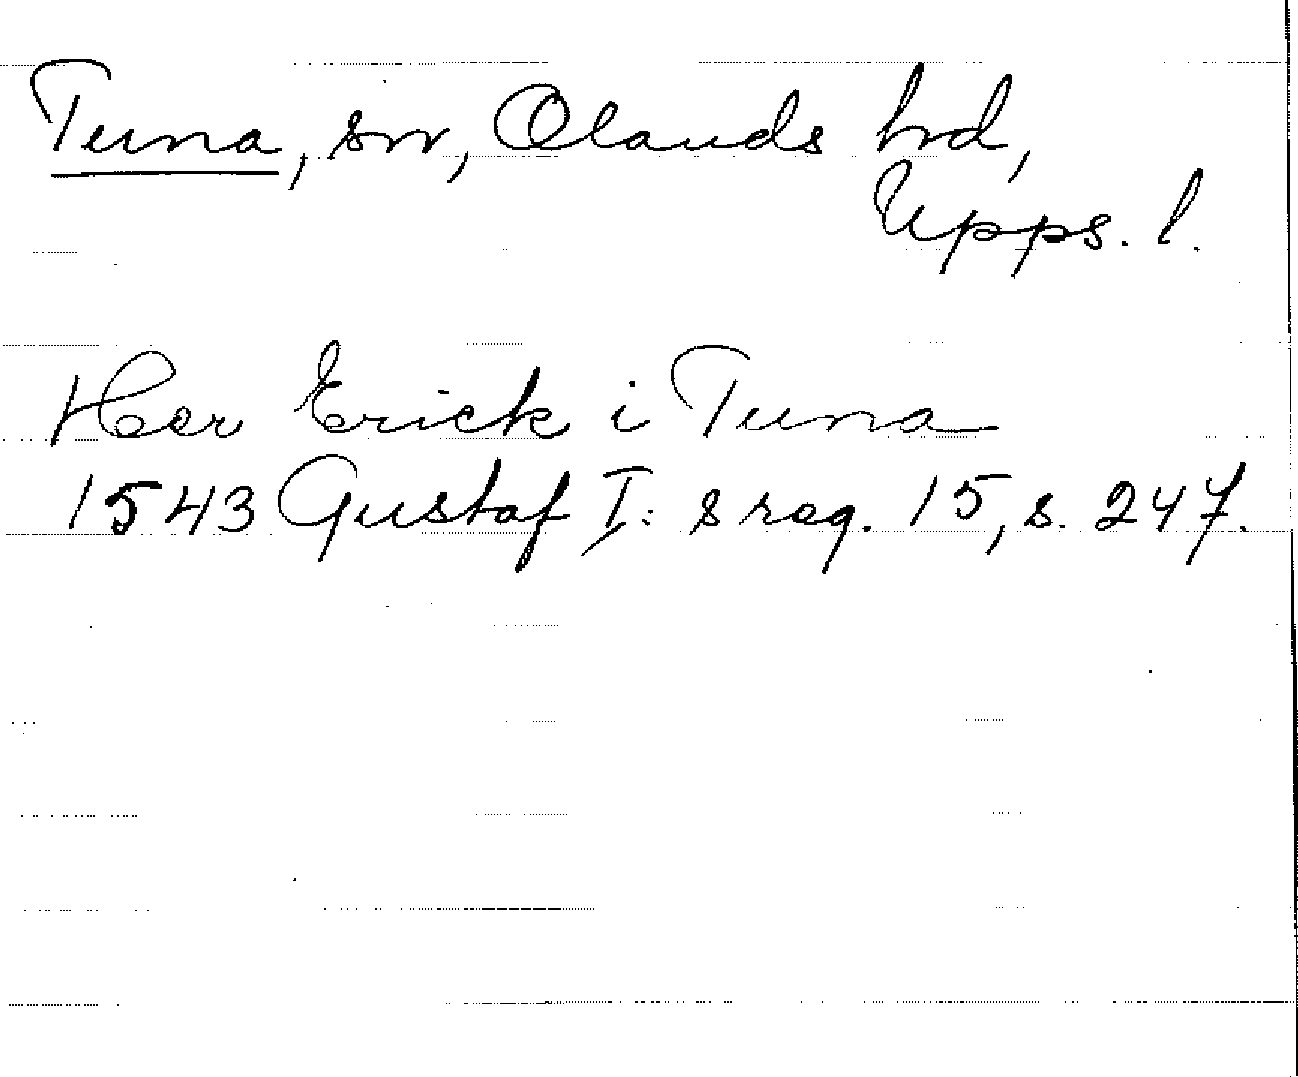 Tuna, sn, Olands hd,
Upps. l.
Her Erick i Tuna
1543 Gustaf I:s reg. 15, s. 247.